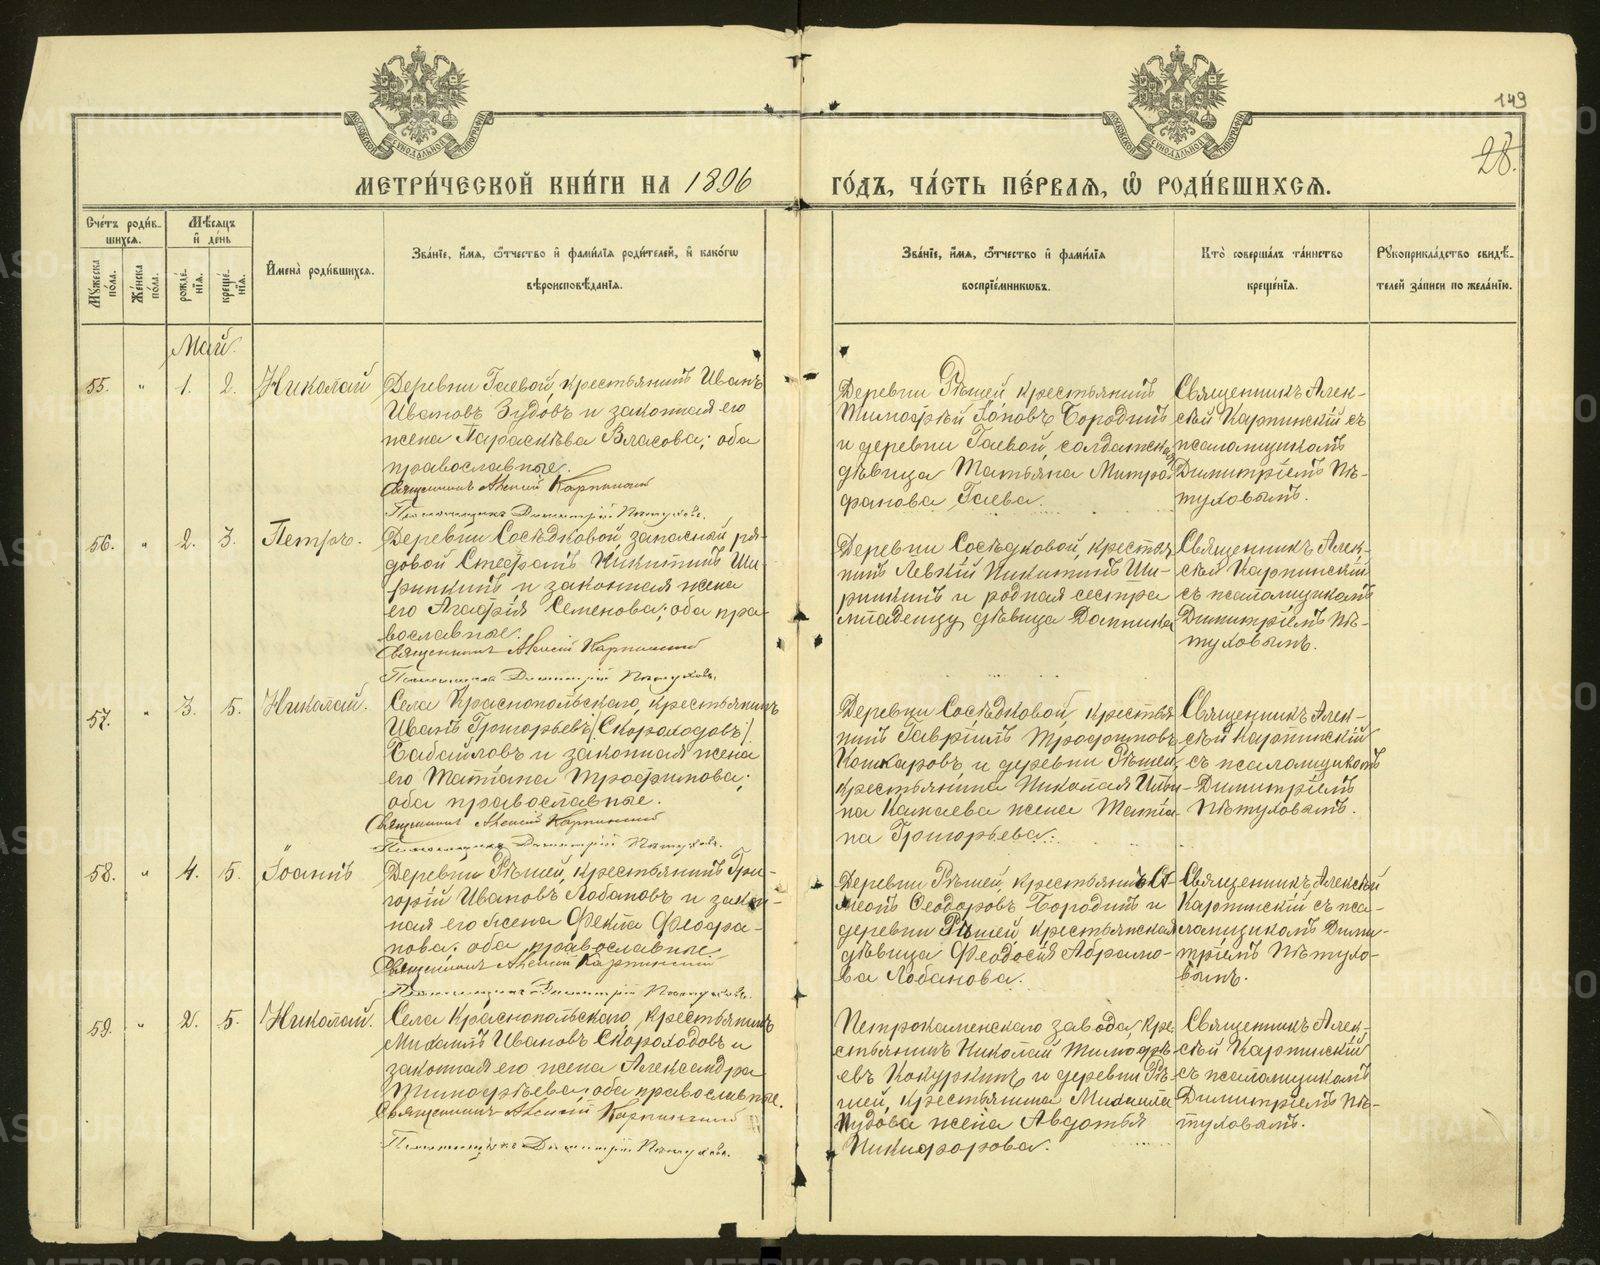 149
28.
МЕТРИ́ЧЕСКОЙ КНИ́ГИ НА 1896
ГО́ДЪ, ЧА́СТЬ ПЕ́РВАѦ, Ѡ҆ РОДИ́ВШИХСѦ.
Сче́тъ роди́в-
шихся.
Мꙋ́жеска по́ла.
Же́нска по́ла.
Мѣ́сяцъ
и҆ де́нь
рожде́нїѧ.
креще́нїѧ.
И҆мена̀ роди́вшихся.
Зва́нїе, и҆́мѧ, ѻ҆́тчество и҆ фами́лїѧ роди́телей, и҆ како́гѡ
вѣроисповѣ́данїѧ.
Зва́нїе, и҆́мѧ, ѻ҆́тчество и҆ фами́лїѧ
воспрїе́мникѡвъ.
Кто̀ соверша́лъ та́инство
креще́нїѧ.
Рꙋкоприкла́дство свидѣ́-
телей за́писи по жела́нїю.
Май.
55. " 1. 2. Николай
Деревни Гаевой, крестьянинъ Иванъ
Ивановъ Зудовъ и законная его
жена Параскѣва Власова; оба
православные.
Священникъ Алексій Карпинский
Псаломщикъ Димитрій Пѣтуховъ.
Деревни Рѣшей крестьянинъ
Тимофѣй Іоновъ Бородинъ
и деревни Гаевой, солдатская
дѣвица Татьяна Митро-
фанова Гаева.
Священникъ Алек-
сѣй Карпинскій съ
псаломщикомъ
Димитріемъ Пѣ-
туховымъ.
56. " 2. 3. Петръ.
Деревни Сосѣдковой запасный ря-
довой Стефанъ Никитинъ Ши-
ринкинъ и законная жена
его Агафія Семенова; оба пра-
вославные.
Священникъ Алексій Карпинский
Псаломщикъ Димитрій Пѣтуховъ.
Деревни Сосѣдковой, крестья-
нинъ Левкій Никитинъ Ши-
ринкинъ и родная сестра
младенцу дѣвица Домника
Священникъ Алек-
сѣй Карпинскій
съ псаломщикомъ
Димитріемъ Пѣ-
туховымъ.
57. " 3. 5. Николай.
Села Краснопольскаго, крестьянинъ
Иванъ Григорьевъ /Скороходовъ/
Бабайловъ и законная жена
его Татіана Трофимова;
оба православные.
Священникъ Алексій Карпинский
Псаломщикъ Димитрій Пѣтуховъ.
Деревни Сосѣдковой, крестья-
нинъ Гавріилъ Трофимовъ
Кошкаровъ и деревни Рѣшей,
крестьянина Николая
на Канаева жена Татіа-
на Григорьева.
Священникъ Алек-
сѣй Карпинскій
съ псаломщикомъ
Димитріемъ
Пѣтуховымъ.
58. " 4. 5. Іоаннъ
Деревни Рѣшей, крестьянинъ Гри-
горій Ивановъ Лобановъ и закон-
ная его жена Фекла Феофа-
нова; оба православные.
Священникъ Алексій Карпинский
Псаломщикъ Димитрій Пѣтуховъ.
Деревни Рѣшей, крестьянинъ Си-
меонъ Феодоровъ Бородинъ и
деревни Рѣшей крестьянская
дѣвица Феодосія Абрамо-
ва Лобанова.
Священникъ Алексѣй
Карпинскій съ пса-
ломщикомъ Дими-
тріемъ Пѣтухо-
вымъ.
59. " 2. 5. Николай.
Села Краснопольскаго, крестьянинъ
Михаилъ Ивановъ Скороходовъ и
законная его жена Александра
Тимофѣева; оба православные.
Священникъ Алексій Карпинский
Псаломщикъ Димитрій Пѣтуховъ.
Петрокаменскаго завода, кре-
стьянинъ Николай Тимофѣ-
евъ Кокуркинъ и деревни Рѣ-
шей, крестьянина Михаила
Пудова жена Авдотья
Никифорова.
Священникъ Алек-
сѣй Карпинскій
съ псаломщикомъ
Димитріемъ Пѣ-
туховымъ.